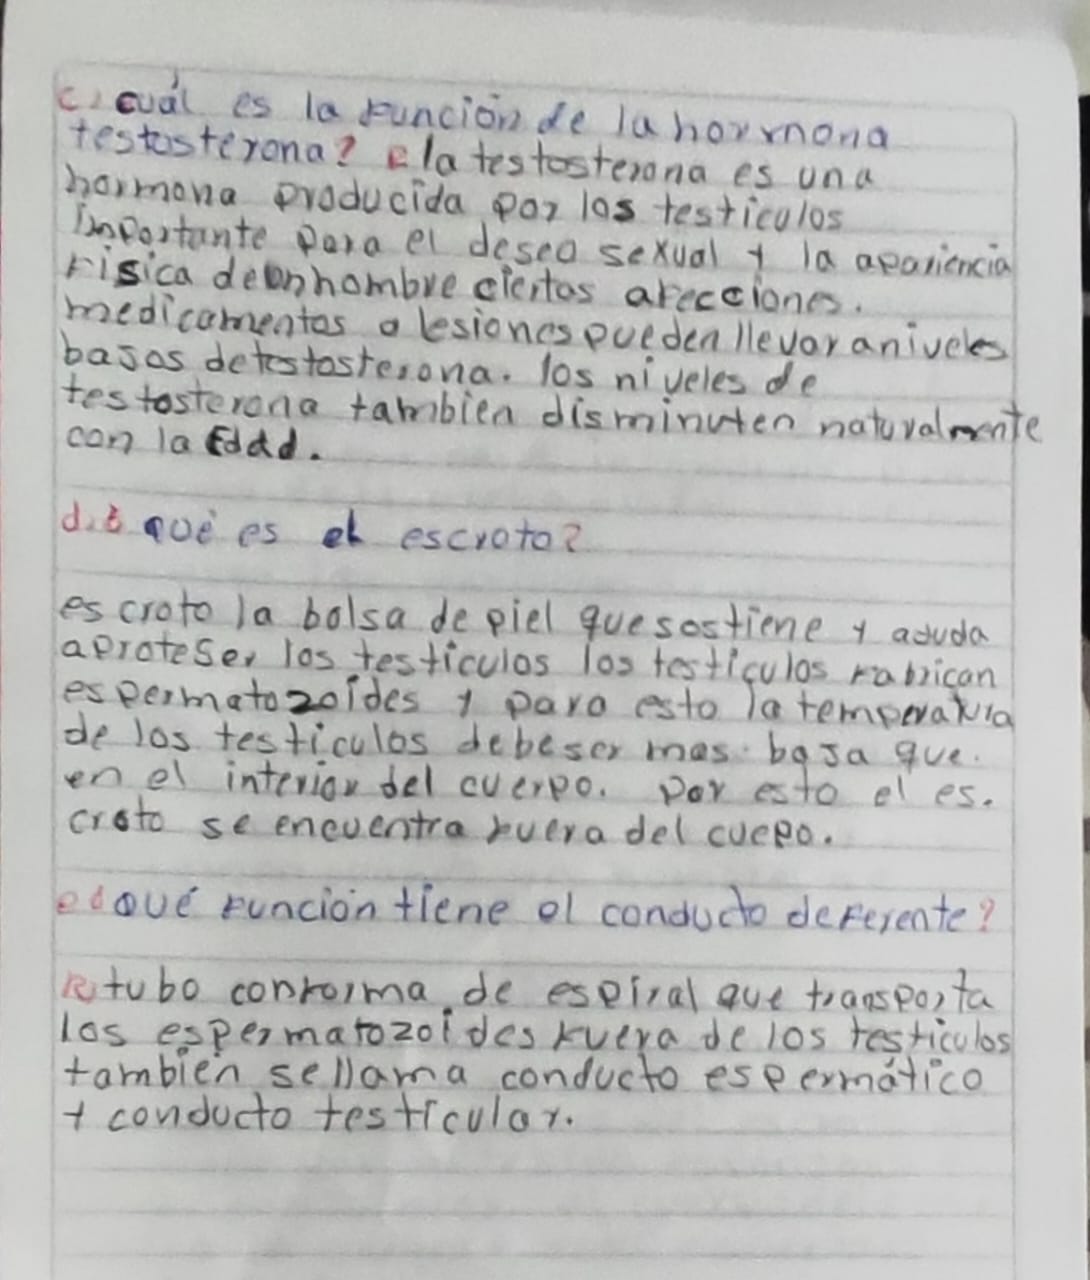 c) cuál es la función de la hormona
testosterona? R la testosterona es una
hormona producida por los testiculos
importante para el deseo sexual y la apariencia
fisica de un hombre ciertas afecciones.
medicamentos o lesiones pueden llevar a niveles
bajos de testosterona. los niveles de
testosterona tambien disminuten naturalmente
con la Edad.
d. que es el escroto?
escroto la bolsa de piel que sostiene y aduda
a proteser los testiculos los testiculos fabrican
espermatozoides y para esto la temperatura
de los testiculos debe ser mas baja que.
en el interior del cuerpo. por esto el es.
croto se encuentra fuera del cuepo.
e d Qué función tiene el conducto deferente?
R tubo con forma de espiral que transporta
los espermatozoides fuera de los testiculos
también se llama conducto espermático
y conducto testicular.